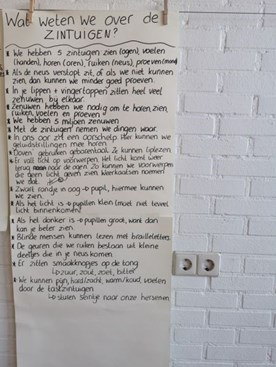 Wat weten we over de
ZINTUIGEN?
* We hebben 5 zintuigen zien (ogen), voelen
(handen), horen (oren), ruiken (neus), proeven (mond)
* Als de neus verstopt zit, of als we niet kunnen
zien, dan kunnen we minder goed proeven
* In je lippen + vinger(toppen) zitten heel veel
zenuwen bij elkaar
* Zenuwen hebben we nodig om te horen, zien,
ruiken, voelen en proeven
* We hebben 5 miljoen zenuwen
* Met de zintuigen nemen we dingen waar.
* In ons oor zit een oorschelp. Hier kunnen we
geluidstrillingen mee horen
* Doven gebruiken gebarentaal. Ze kunnen liplezen
* Er valt licht op voorwerpen. Het licht komt weer
terug naar de ogen. Zo kunnen we voorwerpen
die geen licht geven zien. Weerkaatsen noemen
we dat.
* Zwart rondje in oog → pupil, hiermee kunnen
we zien.
* Als het licht is → pupillen klein (moet niet teveel
licht binnenkomen)
* Als het donker is → pupillen groot, want dan
kan je beter zien.
* Blinde mensen kunnen lezen met brailleletters
* De geuren die we ruiken bestaan uit kleine
deeltjes die in je neus komen.
* Er zitten smaakknopjes op de tong
↳ zuur, zout, zoet, bitter
* We kunnen pijn, hard/zacht, warm/koud, voelen
door de tastzintuigen
↳ sturen seintje naar onze hersenen